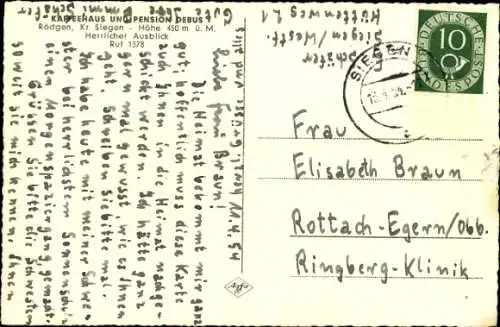 KAFFEEHAUS UND PENSION DEBUS
Rödgen, Kr Siegen - Höhe 450 m ü. M.
Herrlicher Ausblick
Ruf 1578
Liebe Frau Braun!
Die Heimat bekommt mir ganz
gut; hoffentlich muss diese Karte
Ihnen in die Heimat nachge-
schickt werden. Ich hätte ganz
gern mal gewusst, wie es Ihnen
geht. Schreiben Sie bitte mal.
Ich habe heute mit meiner Schwe-
ster bei herrlichstem Sonnenschein
einen Morgenspaziergang gemacht.
Grüssen Sie bitte die Schwestern
sowie die mich kennen. Ihnen
Gute
Schäfer
Siegen/Westf.
Hüttenweg 21
SIEGEN
DEUTSCHE BUNDESPOST
10
Frau
Elisabeth Braun
Rottach-Egern/Obb.
Ringberg-Klinik
Agfa